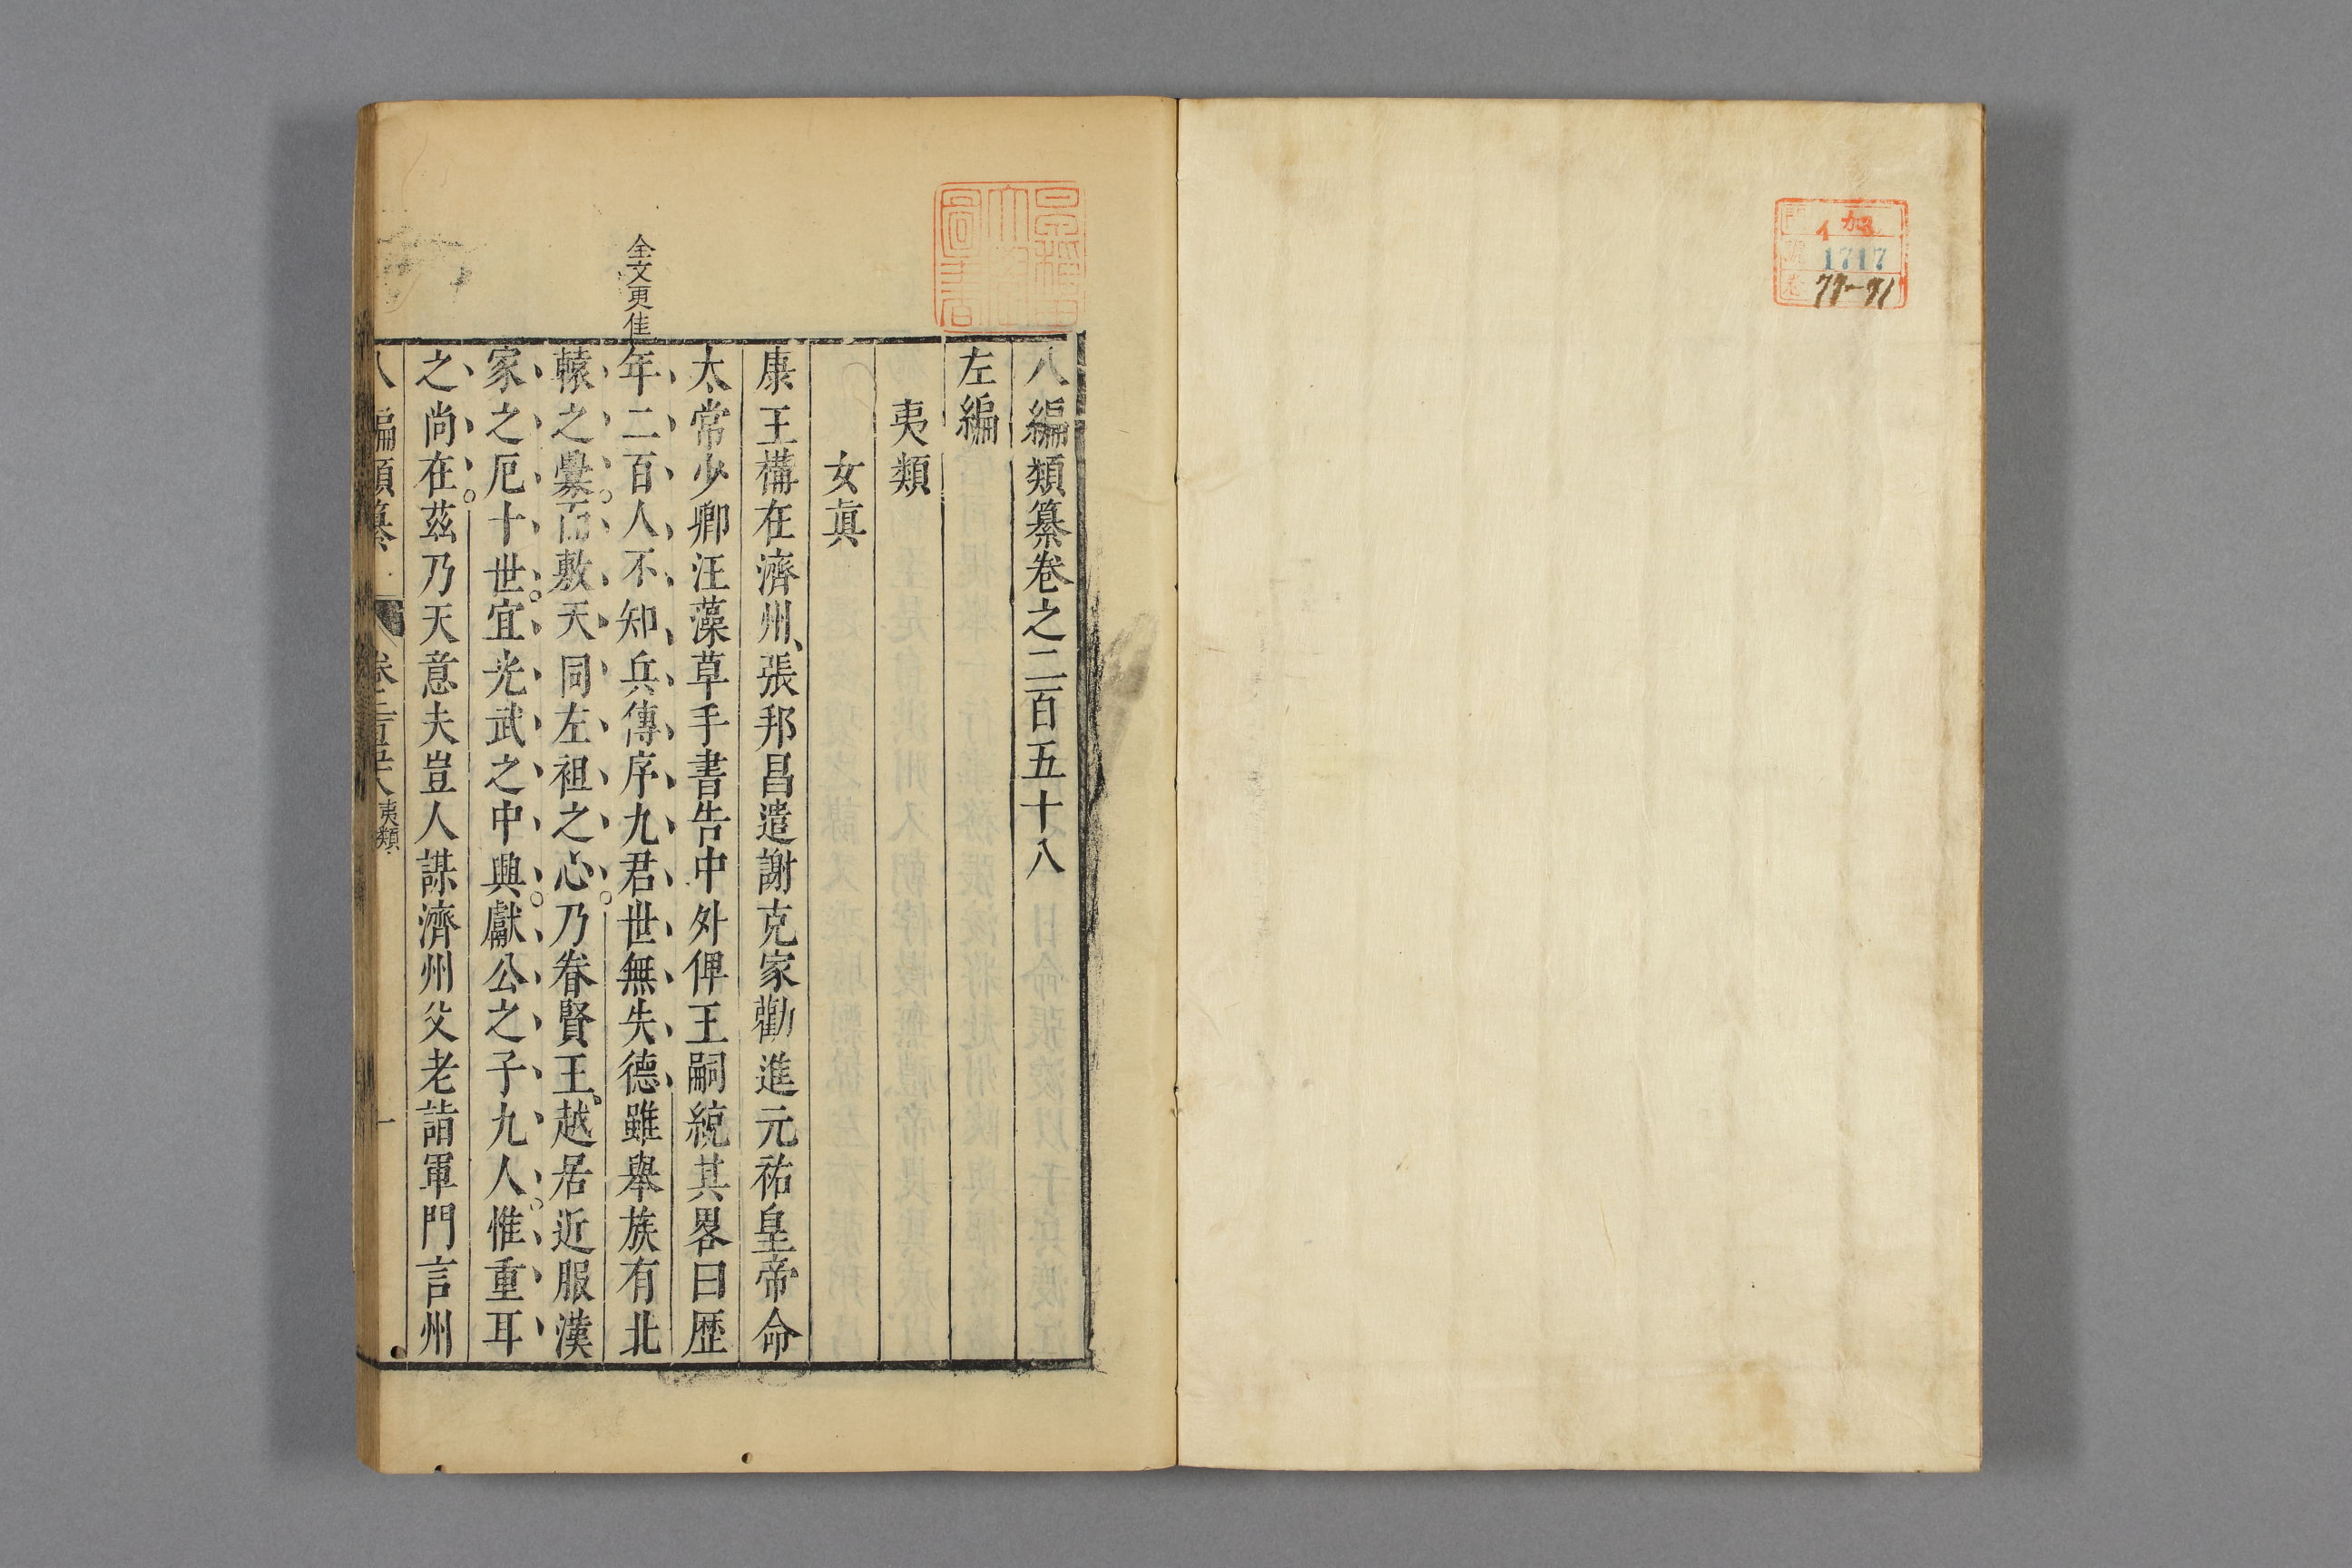 加
イ
1717
77-91
八編類纂卷之二百五十八
左編
夷類
女眞
康王構在濟州、張邦昌遣謝克家勸進元祐皇帝命
太常少卿汪藻草手書告中外俾王嗣統其畧曰歷
年二百人不知兵傳序九君世無失德雖舉族有北
轅之釁而敷天同左袒之心乃眷賢王越居近服漢
家之厄十世宜光武之中興獻公之子九人惟重耳
之尚在茲乃天意夫豈人謀濟州父老詣軍門言州
全文更佳
八編類纂
卷二百五十八
夷類
一